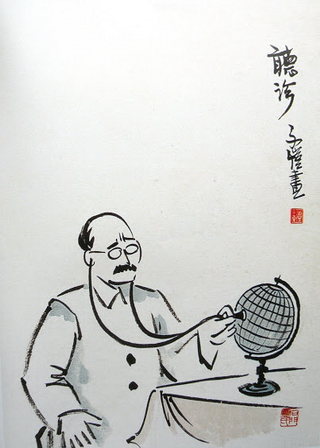 聽診
子愷畫